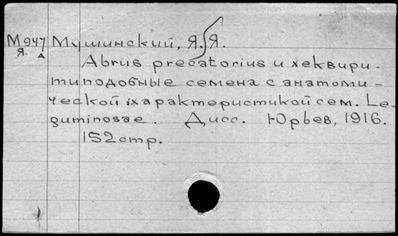 М947 Мушинский, Я. Я.
Я. Abrus precatorius и хеквири-
типодобные семена с анатоми-
ческой характеристикой сем. Le-
guminosae. Дисс. Юрьев, 1916.
152 стр.